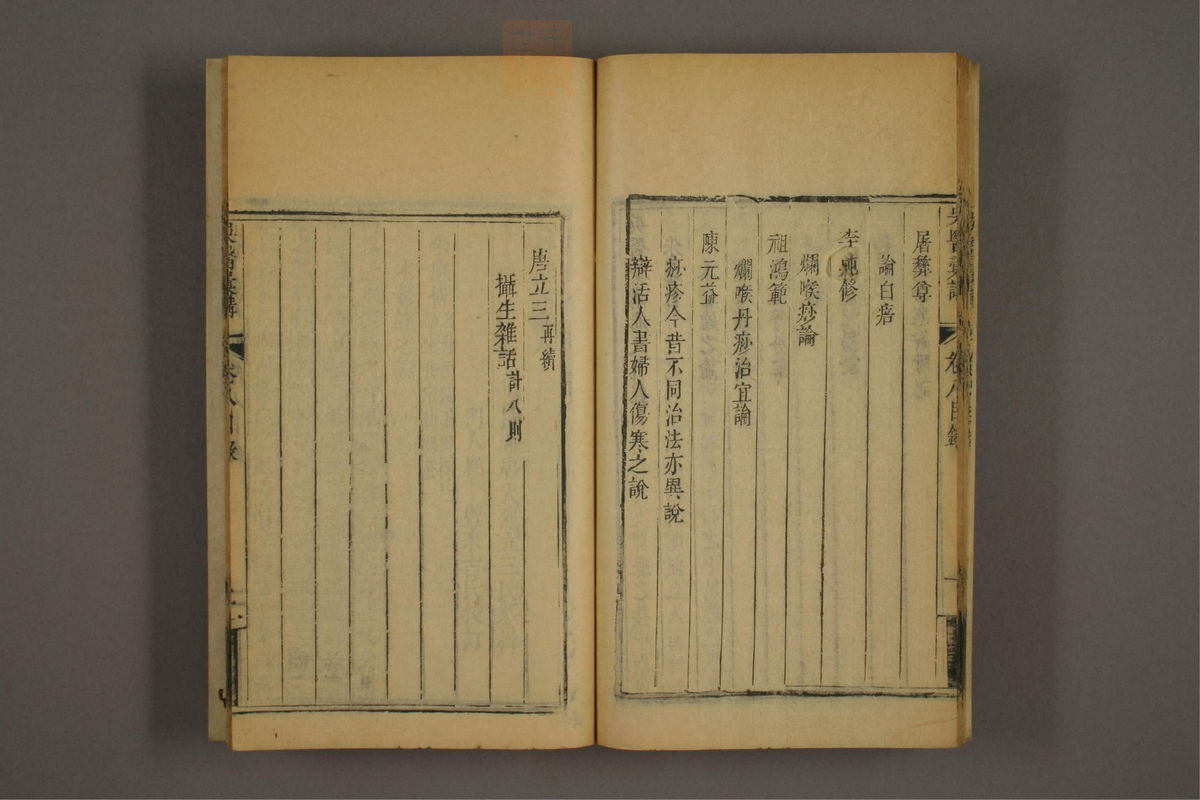 吳醫彙講 卷八目錄 一
屠彝尊
論白㾦
李純修
爛喉痧論
祖鴻範
爛喉丹痧治宜論
陳元益
痧疹今昔不同治法亦異說
辯活人書婦人傷寒之說
唐立三 再續
攝生雜話 計八則
吳醫彙講 卷八目錄